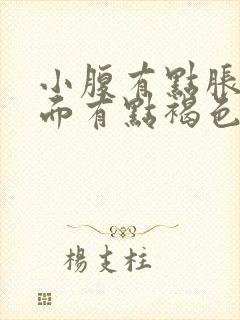 小腹有點脹
而有點褐色
楊支柱